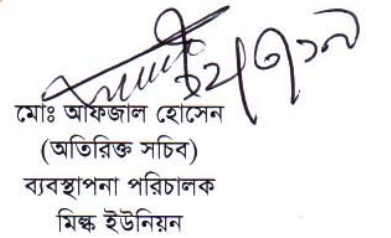 মোঃ আফজাল হোসেন
(অতিরিক্ত সচিব)
ব্যবস্থাপনা পরিচালক
মিল্ক ইউনিয়ন